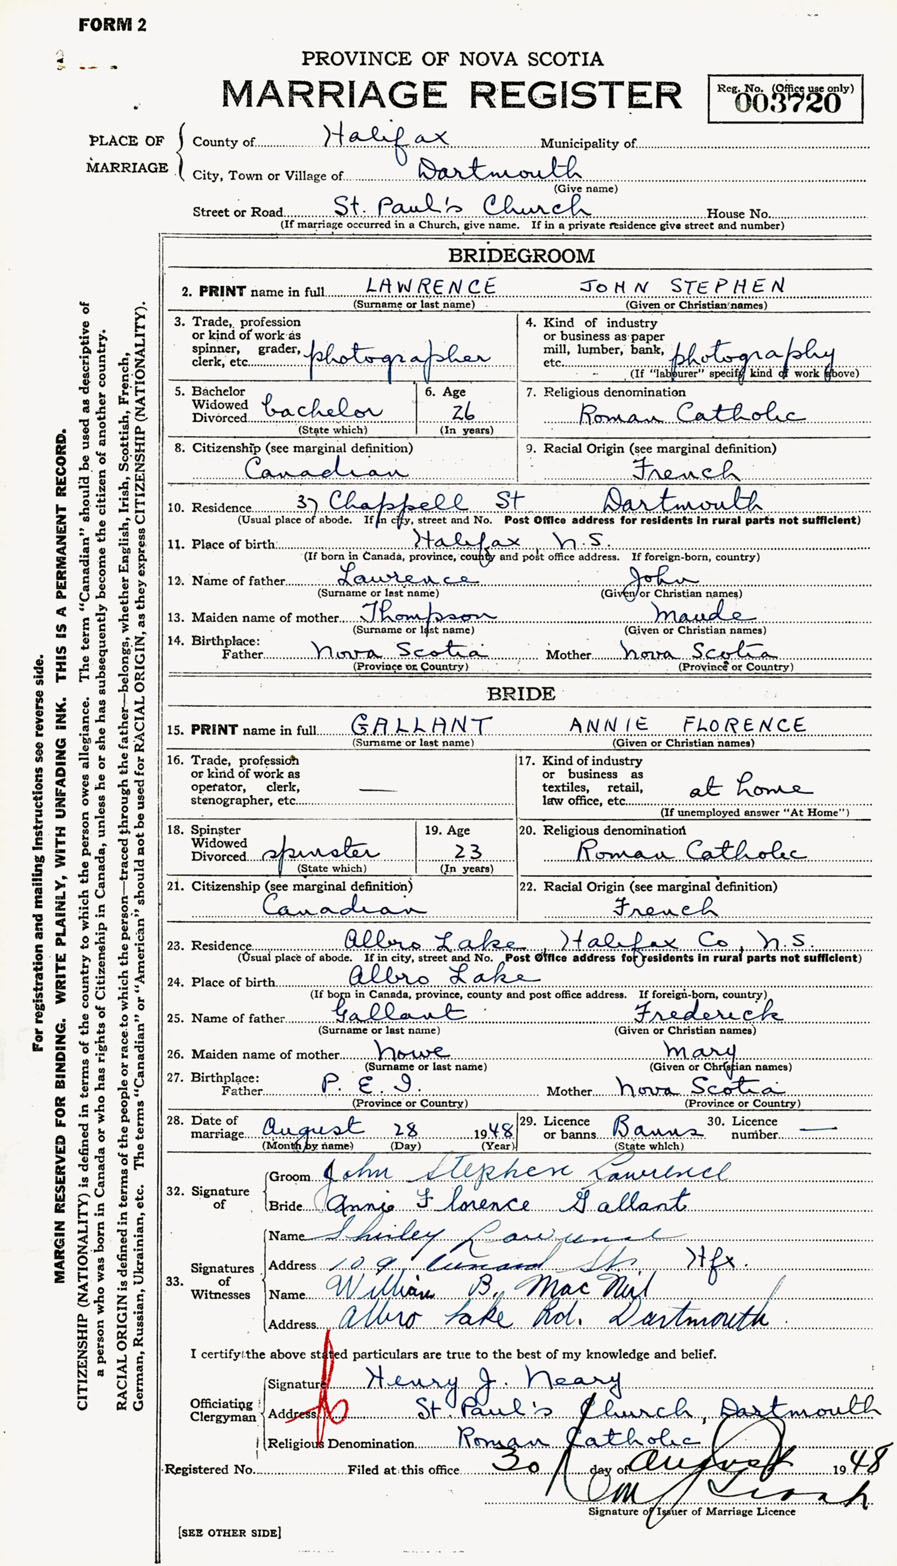 FORM 2
PROVINCE OF NOVA SCOTIA
MARRIAGE REGISTER
Reg. No. (Office use only)
003720
PLACE OF MARRIAGE
County of Halifax Municipality of
City, Town or Village of Dartmouth
(Give name)
Street or Road St. Paul's Church House No.
(If marriage occurred in a Church, give name. If in a private residence give street and number)
BRIDEGROOM
2. PRINT name in full LAWRENCE JOHN STEPHEN
(Surname or last name) (Given or Christian names)
3. Trade, profession or kind of work as spinner, grader, clerk, etc. photographer
4. Kind of industry or business as paper mill, lumber, bank, etc. photography
(If "labourer" specify kind of work above)
5. Bachelor Widowed Divorced bachelor
(State which)
6. Age 26
(In years)
7. Religious denomination
Roman Catholic
8. Citizenship (see marginal definition)
Canadian
9. Racial Origin (see marginal definition)
French
10. Residence 37 Chappell St Dartmouth
(Usual place of abode. If in city, street and No. Post Office address for residents in rural parts not sufficient)
11. Place of birth Halifax N.S.
(If born in Canada, province, county and post office address. If foreign-born, country)
12. Name of father Lawrence John
(Surname or last name) (Given or Christian names)
13. Maiden name of mother Thompson Maude
(Surname or last name) (Given or Christian names)
14. Birthplace: Father Nova Scotia Mother Nova Scotia
(Province or Country) (Province or Country)
BRIDE
15. PRINT name in full GALLANT ANNIE FLORENCE
(Surname or last name) (Given or Christian names)
16. Trade, profession or kind of work as operator, clerk, stenographer, etc. —
17. Kind of industry or business as textiles, retail, law office, etc. at home
(If unemployed answer "At Home")
18. Spinster Widowed Divorced spinster
(State which)
19. Age 23
(In years)
20. Religious denomination
Roman Catholic
21. Citizenship (see marginal definition)
Canadian
22. Racial Origin (see marginal definition)
French
23. Residence Albro Lake, Halifax Co, N.S.
(Usual place of abode. If in city, street and No. Post Office address for residents in rural parts not sufficient)
24. Place of birth Albro Lake
(If born in Canada, province, county and post office address. If foreign-born, country)
25. Name of father Gallant Frederick
(Surname or last name) (Given or Christian names)
26. Maiden name of mother Howe Mary
(Surname or last name) (Given or Christian names)
27. Birthplace: Father P. E. I. Mother Nova Scotia
(Province or Country) (Province or Country)
28. Date of marriage August 28 1948
(Month by name) (Day) (Year)
29. Licence or banns Banns
(State which)
30. Licence number —
32. Signature of
Groom John Stephen Lawrence
Bride Annie Florence Gallant
33. Signatures of Witnesses
Name Shirley Lawrence
Address 109 Cunard St. Hfx.
Name William B. MacNeil
Address Albro Lake Rd. Dartmouth
I certify the above stated particulars are true to the best of my knowledge and belief.
Officiating Clergyman
Signature Henry J. Neary
Address St. Paul's Church, Dartmouth
Religious Denomination Roman Catholic
Registered No. Filed at this office 30 day of August 1948
Signature of Issuer of Marriage Licence
[SEE OTHER SIDE]
For registration and mailing instructions see reverse side.
MARGIN RESERVED FOR BINDING. WRITE PLAINLY, WITH UNFADING INK. THIS IS A PERMANENT RECORD.
CITIZENSHIP (NATIONALITY) is defined in terms of the country to which the person owes allegiance. The term "Canadian" should be used as descriptive of
a person who was born in Canada or who has rights of Citizenship in Canada, unless he or she has subsequently become the citizen of another country.
RACIAL ORIGIN is defined in terms of the people or race to which the person—traced through the father—belongs, whether English, Irish, Scottish, French,
German, Russian, Ukrainian, etc. The terms "Canadian" or "American" should not be used for RACIAL ORIGIN, as they express CITIZENSHIP (NATIONALITY).